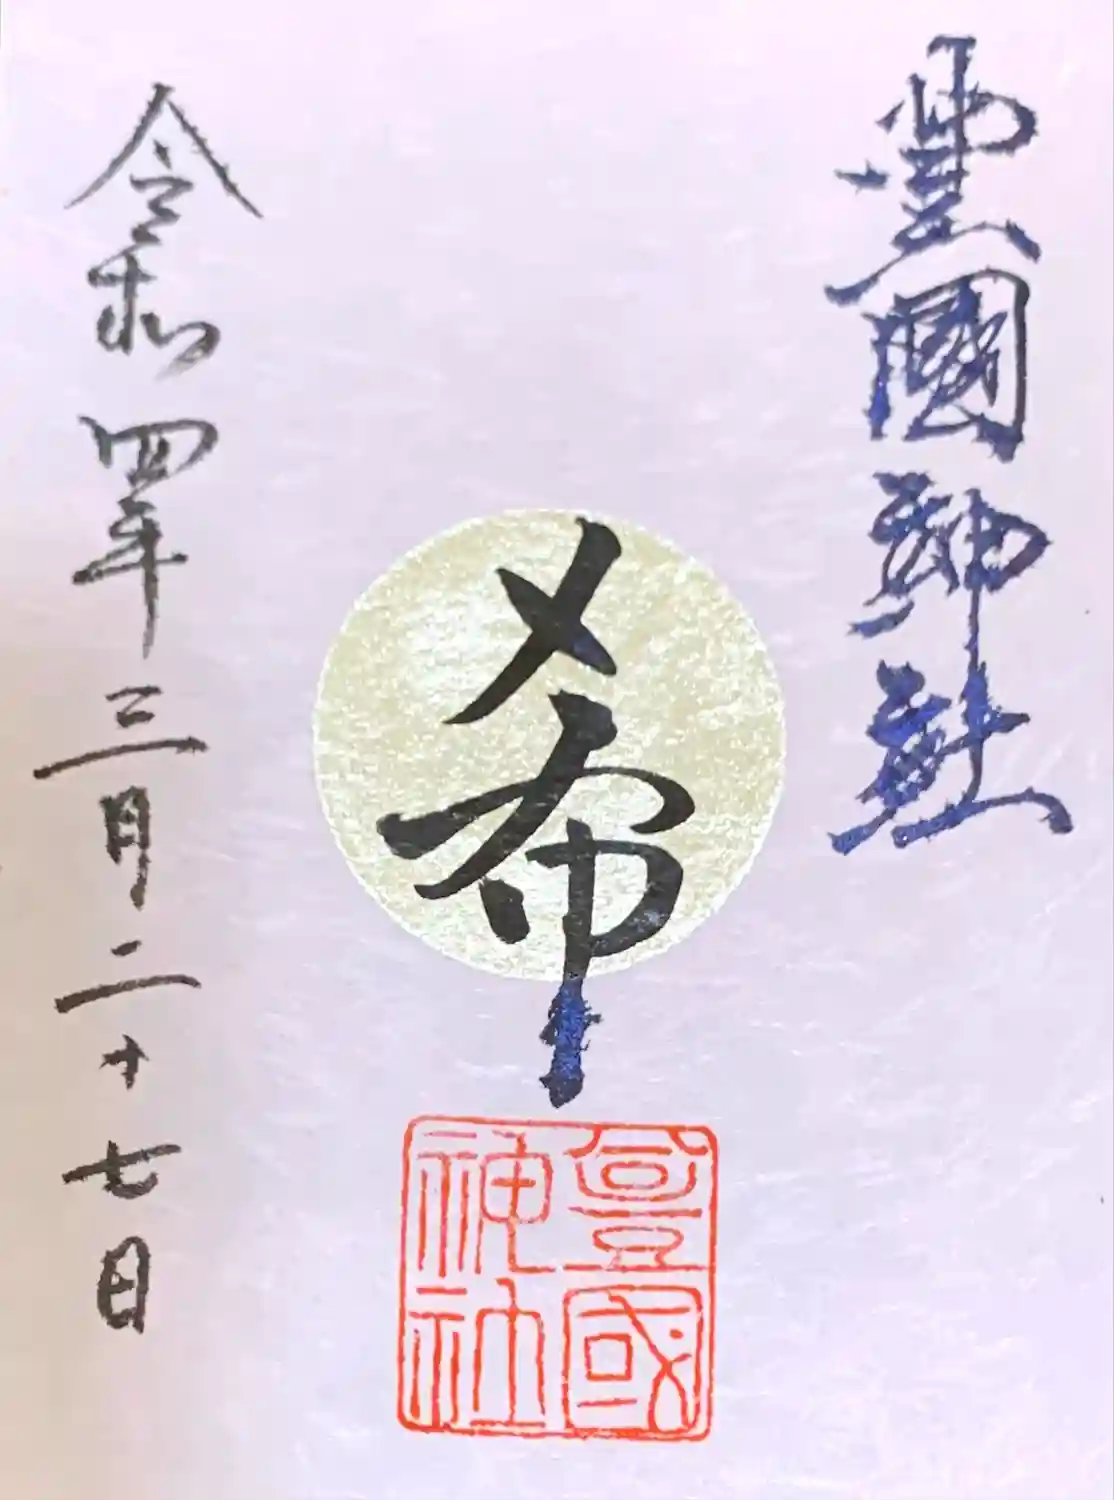 豊國神社
希
豊國
神社
令和四年三月二十七日